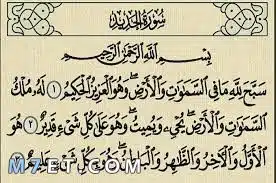 سُورَةُ الْحَدِيدِ
بِسْمِ اللَّهِ الرَّحْمَٰنِ الرَّحِيمِ
سَبَّحَ لِلَّهِ مَا فِي السَّمَاوَاتِ وَالْأَرْضِ ۖ وَهُوَ الْعَزِيزُ الْحَكِيمُ ١ لَهُ مُلْكُ
السَّمَاوَاتِ وَالْأَرْضِ ۖ يُحْيِي وَيُمِيتُ ۖ وَهُوَ عَلَىٰ كُلِّ شَيْءٍ قَدِيرٌ ٢ هُوَ
الْأَوَّلُ وَالْآخِرُ وَالظَّاهِرُ وَالْبَاطِنُ ۖ وَهُوَ بِكُلِّ شَيْءٍ عَلِيمٌ ٣